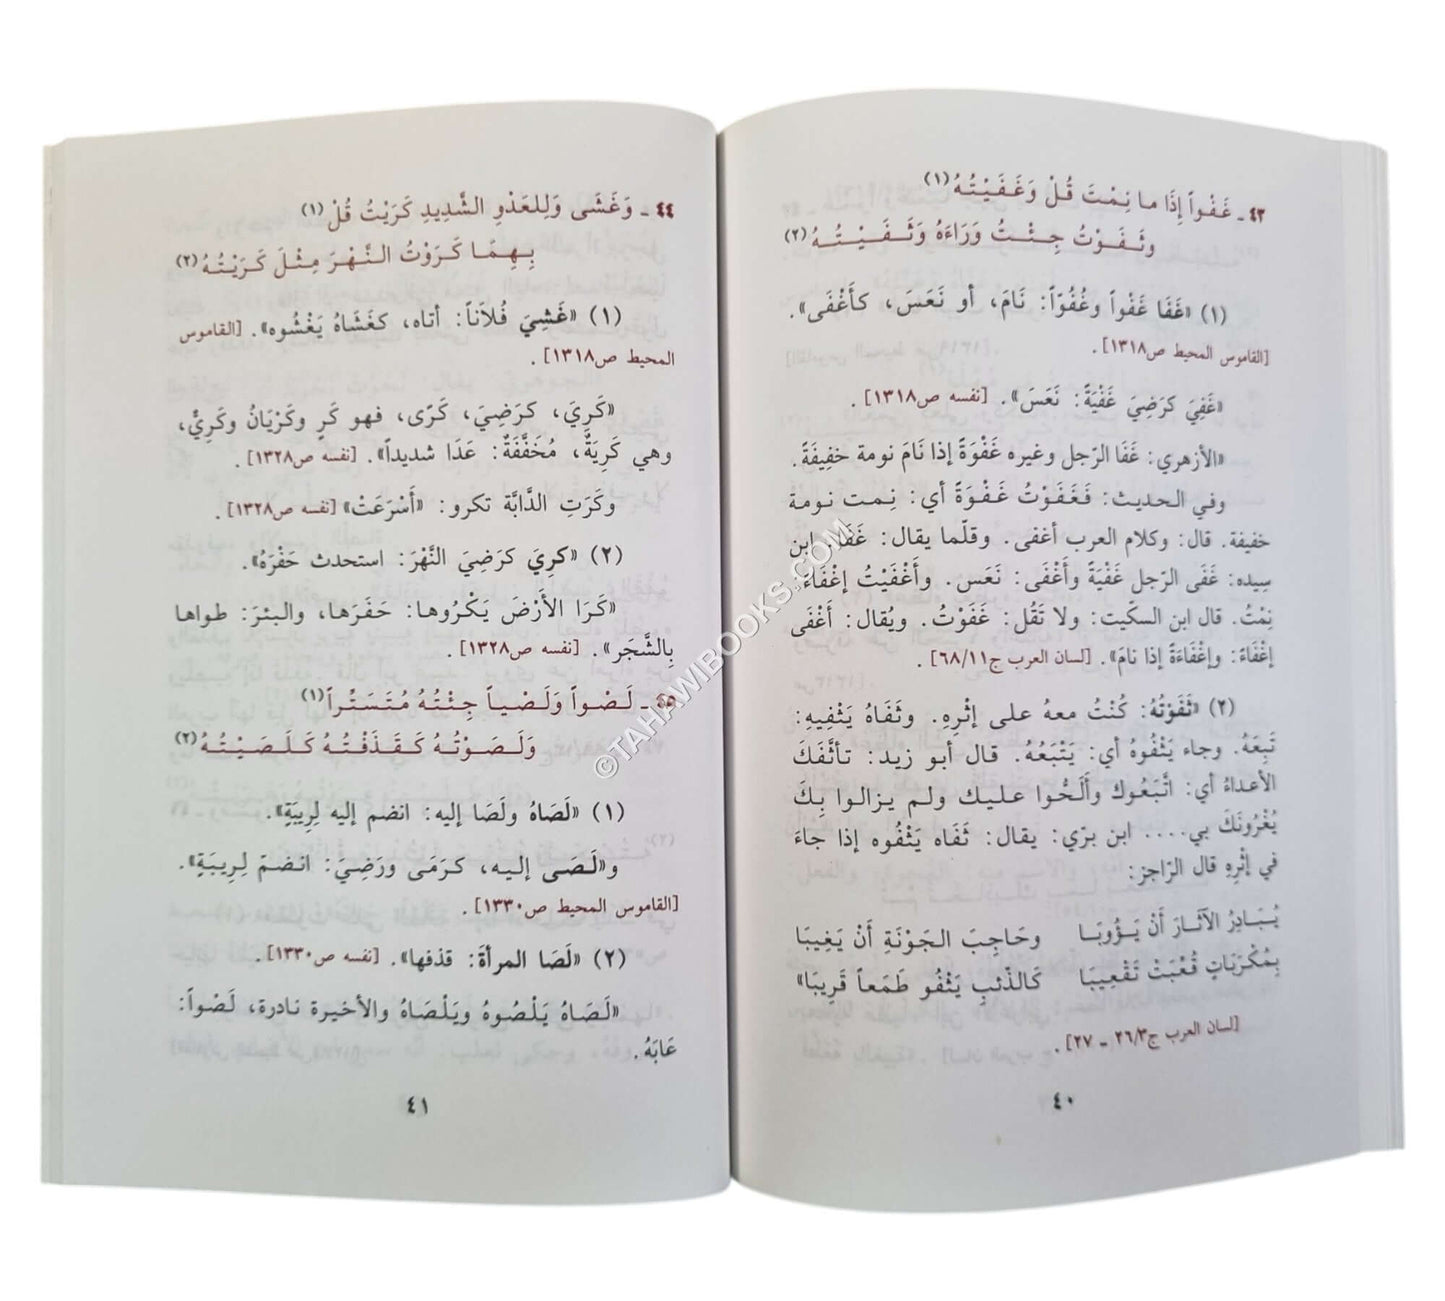 ٤٣ ـ غَفْواً إِذَا ما نِمْتَ قُلْ وَغَفَيْتُهُ (١)
وثَـفَـوْتُ جِـئْـتُ وَرَاءَهُ وَثَـفَـيْـتُـهُ (٢)
(١) «غَفَا غَفْواً وغُفُوّاً: نَامَ، أو نَعَسَ، كأَغْفَى».
[القاموس المحيط ص١٣١٨].
«غَفِيَ كرَضِيَ غَفْيَةً: نَعَسَ». [نفسه ص١٣١٨].
«الأزهري: غَفَا الرّجل وغيره غَفْوَةً إذا نَامَ نومة خفِيفَةً.
وفي الحديث: فَغَفَوْتُ غَفْوَةً أي: نِمت نومة
خفيفة. قال: وكلام العرب أغفى. وقلّما يقال: غَفَا. ابن
سِيده: غَفَى الرّجل غَفْيَةً وأَغْفَى: نَعَس. وأَغْفَيْتُ إغْفَاءً:
نِمْتُ. قال ابن السكّيت: ولا تَقُل: غَفَوْتُ. ويُقال: أَغْفَى
إغْفَاءً: وإغْفَاءَةً إذا نامَ». [لسان العرب ج١١/٦٨].
(٢) «ثَفَوْتُهُ: كُنْتُ معهُ على إثْرِهِ. وثَفَاهُ يَثْفِيهِ:
تَبِعَهُ. وجاء يَثْفُوهُ أي: يَتْبَعُهُ. قال أبو زيد: تأثَّفَكَ
الأعداءُ أي: اتَّبَعُوك وأَلَحُّوا عليك ولم يزالوا بِكَ
يُغْرُونَكَ بي.... ابن برّي: يقال: ثَفَاه يَثْفُوه إذا جاءَ
في إثْرِهِ قال الرّاجز:
يُـبَـادِرُ الآثَـارَ أَنْ يَـؤُوبَـا وحَاجِبَ الجَوْنَةِ أَنْ يَغِيبَا
بِمُكْرَبَاتٍ قُعّبَتْ تَقْعِيبَا كَالذّئبِ يَثْفُو طَمَعاً قَرِيبَا»
[لسان العرب ج٢٦/٣ ـ ٢٧].
٤٠
٤٤ ـ وَغَشَى وَلِلعَدْوِ الشَّدِيدِ كَرَيْتُ قُلْ (١)
بِـهِـمَا كَرَوْتُ النَّهْرَ مِثْلَ كَرَيْتُهُ (٢)
(١) «غَشِيَ فُلاَناً: أتاه، كغَشَاهُ يَغْشُوه». [القاموس
المحيط ص١٣١٨].
«كَرِيَ، كرَضِيَ، كَرًى، فهو كَرٍ وكَرْيَانُ وكَرِيٌّ،
وهي كَرِيَةٌ، مُخَفَّفَةٌ: عَدَا شديداً». [نفسه ص١٣٢٨].
وكَرَتِ الدَّابَّة تكرو: «أَسْرَعَتْ» [نفسه ص١٣٢٨].
(٢) «كرِيَ كرَضِيَ النَّهْرَ: استحدث حَفْرَهُ».
«كَرَا الأَرْضَ يَكْرُوها: حَفَرَها، والبئرَ: طواها
بِالشَّجَر». [نفسه ص١٣٢٨].
٤٥ ـ لَـصْـواً وَلَـصْـيـاً جِـئْـتُـهُ مُـتَـسَـتِّـراً (١)
وَلَـصَـوْتُـهُ كَـقَـذَفْـتُـهُ كَـلَـصَـيْـتُـهُ (٢)
(١) «لَصَاهُ ولَصَا إليه: انضم إليه لِرِيبَةٍ».
و«لَـصَـى إلـيـه، كـرَمَى ورَضِيَ: انـضـمّ لِـرِيـبَـةٍ».
[القاموس المحيط ص١٣٣٠].
(٢) «لَصَا المرأةَ: قذفها». [نفسه ص١٣٣٠].
«لَصَاهُ يَلْصُوهُ ويَلْصَاهُ والأخيرة نادرة، لَصْواً:
عَابَهُ.
٤١
©TAHAWIBOOKS.COM